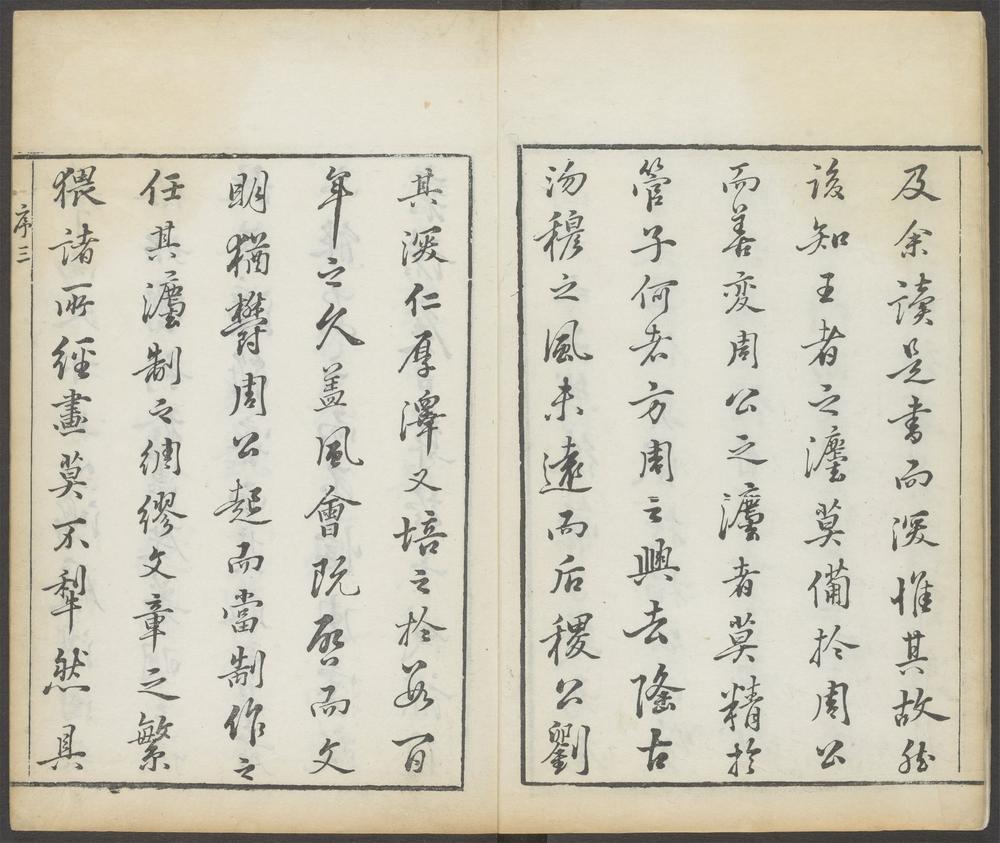 及余讀是書而深惟其故然
後知王者之灋莫備於周公
而善變周公之灋者莫精於
管子何者方周之興去隆古
沕穆之風未遠而后稷公劉
其深仁厚澤又培之於數百
年之久盖風會既啓而文
明猶欝周公起而當制作之
任其灋制之綢繆文章之繁
猥諸所經畫莫不犁然具
序三